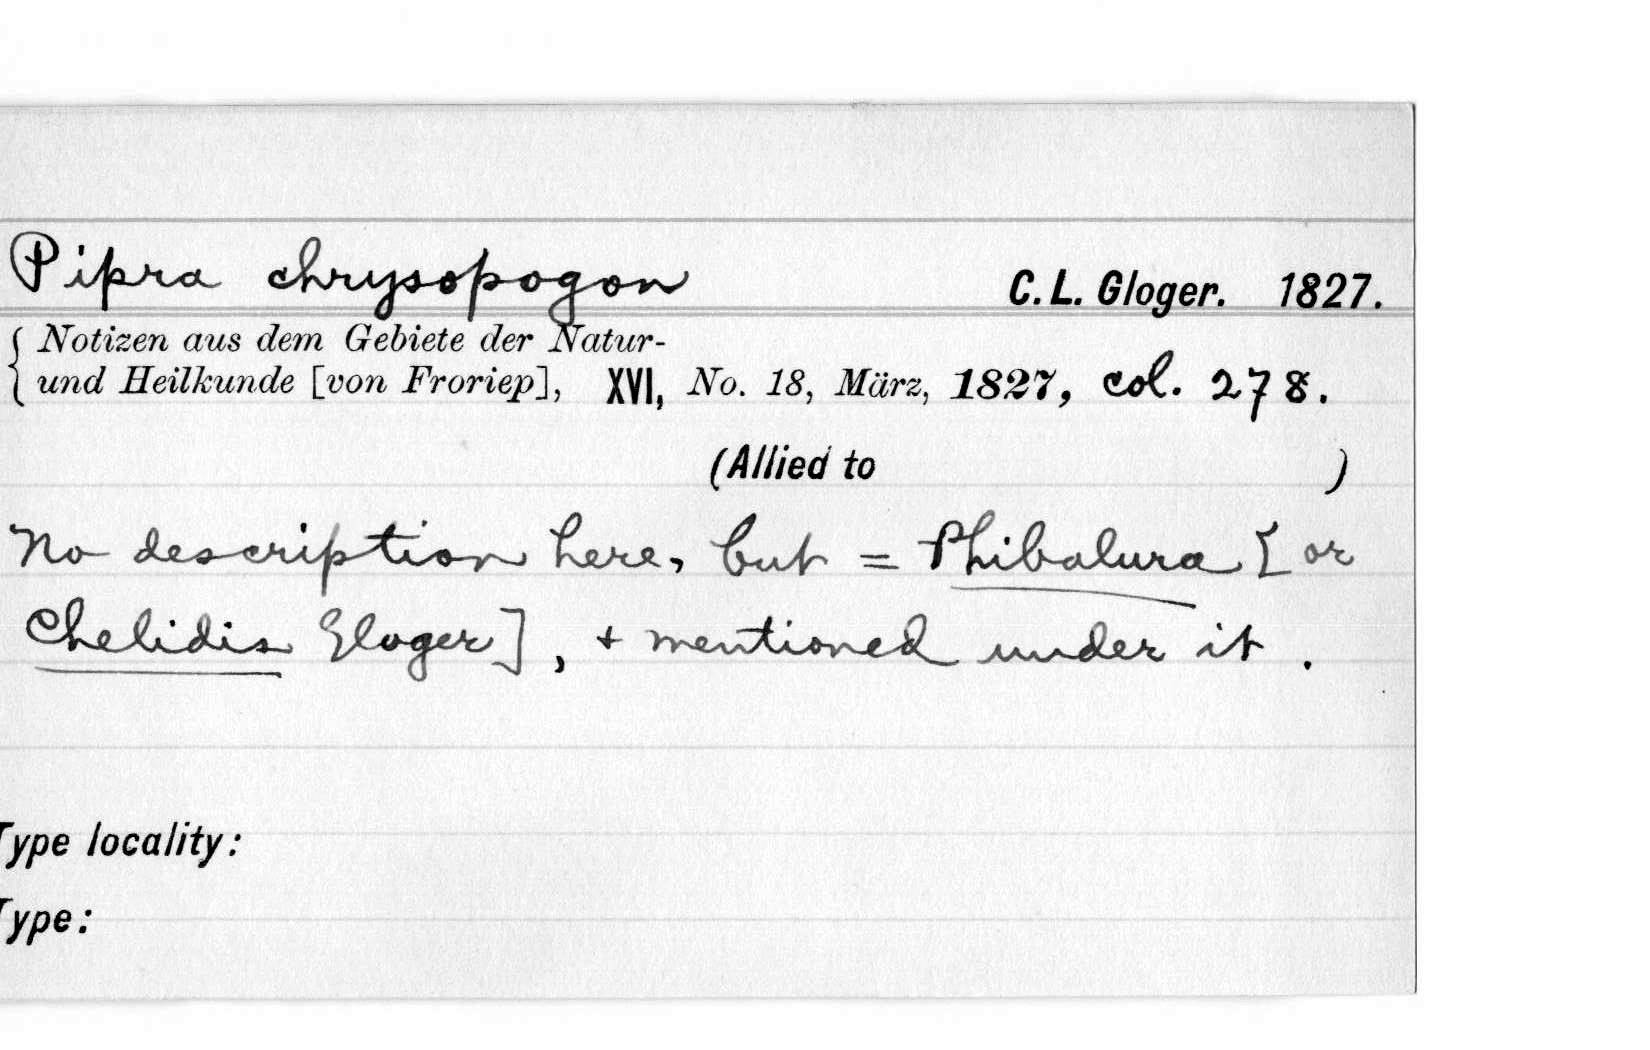 Pipra chrysopogon C. L. Gloger. 1827.
Notizen aus dem Gebiete der Natur-
und Heilkunde [von Froriep], XVI, No. 18, März, 1827, col. 278.
(Allied to )
No description here, but = Phibalura [or
Chelidis Gloger], + mentioned under it.
Type locality:
Type: